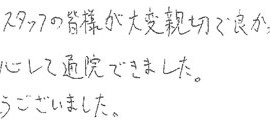 スタッフの皆様が大変親切で良か
心して通院できました。
うございました。